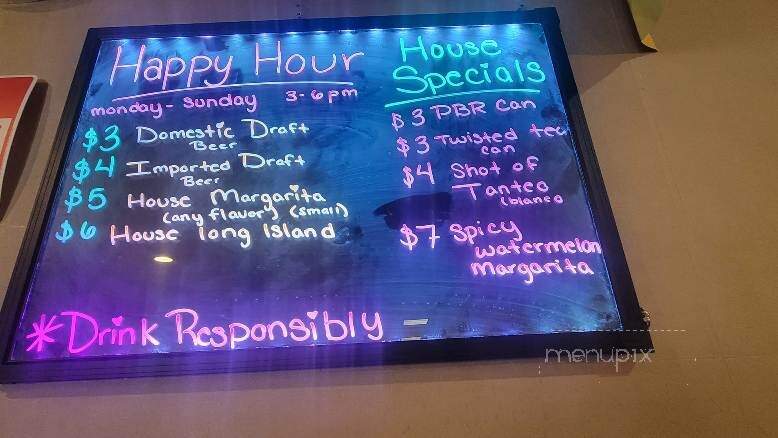 Happy Hour
monday - sunday 3-6pm
$3 Domestic Draft
Beer
$4 Imported Draft
Beer
$5 House Margarita
(any flavor) (small)
$6 House long Island
House
Specials
$3 PBR Can
$3 Twisted tea
can
$4 Shot of
Tanteo
(blanco
$7 Spicy
watermelon
Margarita
*Drink Responsibly
menupix